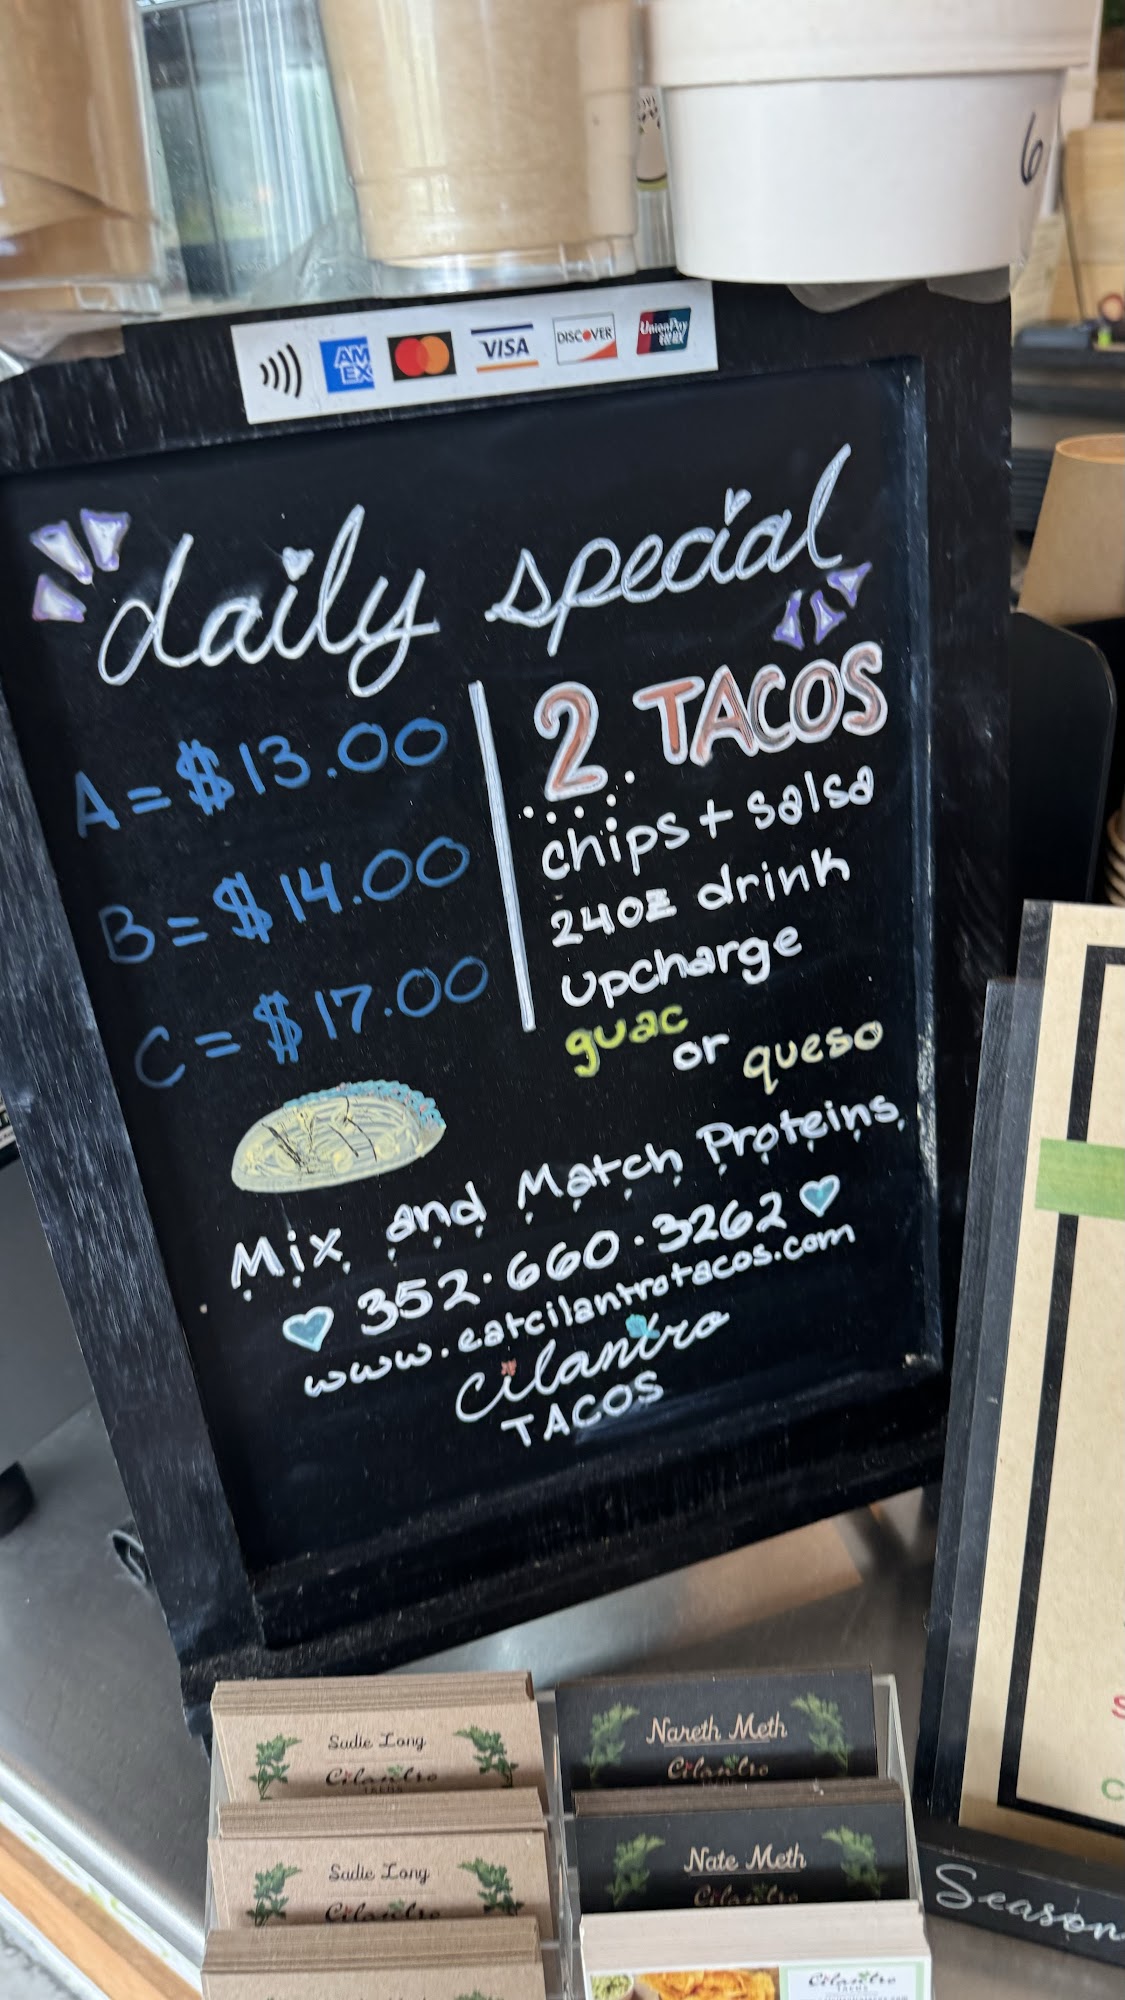 6
AM
EX
VISA
DISCOVER
UnionPay
银联
daily special
A = $13.00
B = $14.00
C = $17.00
2 TACOS
chips + salsa
24oz drink
upcharge
guac
or queso
Mix and Match Proteins
352.660.3262
www.eatcilantrotacos.com
cilantro
TACOS
Sadie Long
Cilantro
TACOS
Nareth Meth
Cilantro
TACOS
Sadie Long
Cilantro
Nate Meth
Cilantro
Cilantro
TACOS
Season